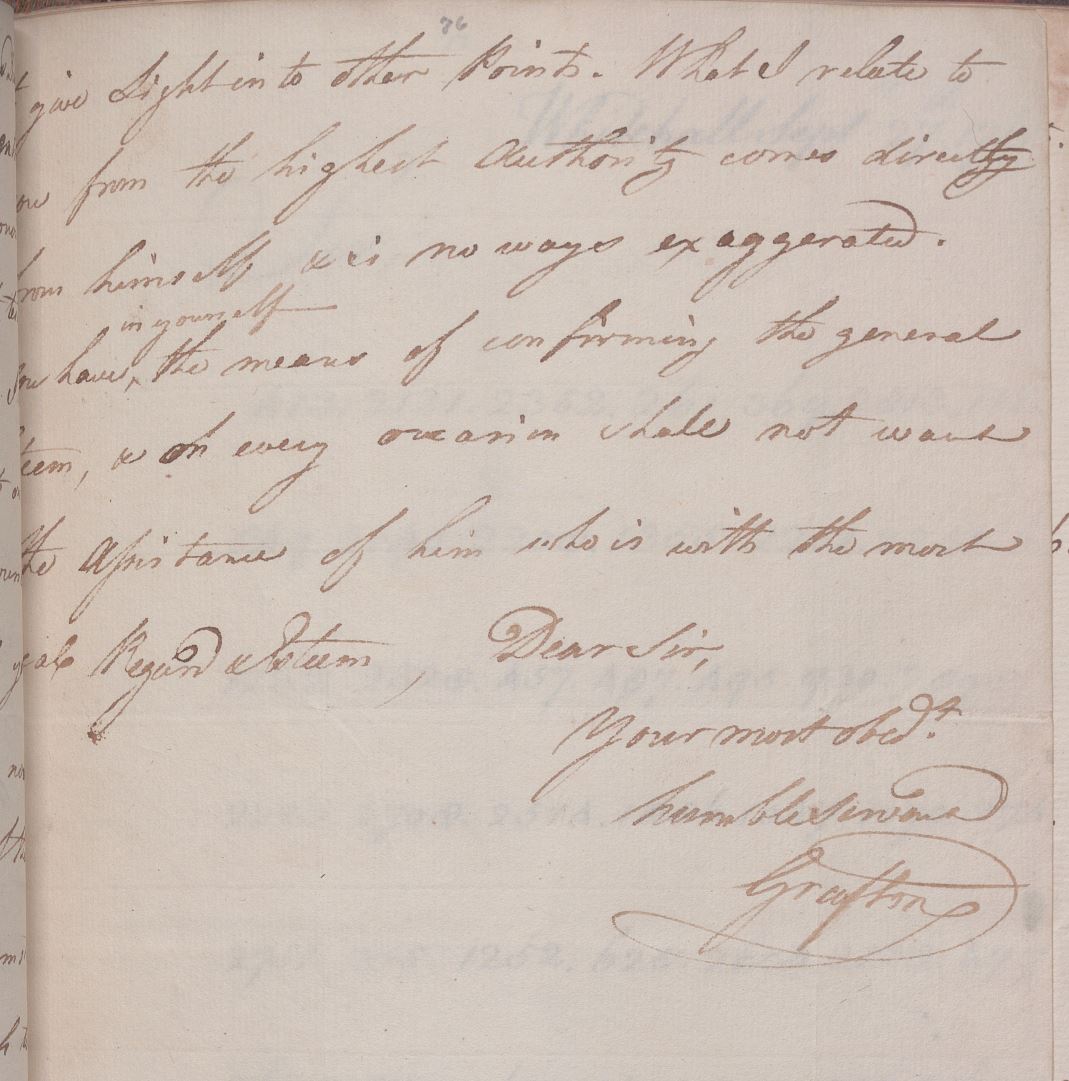 76
give Light into other Points. What I relate to
you from the highest Authority comes directly
from himself & is no ways exaggerated.
in yourself
You have, the means of confirming the general
teem, & on every occasion shall not want
the Assistance of him who is with the most
Regard & Esteem, Dear Sir,
Your most obed.t
humble Servant
Grafton